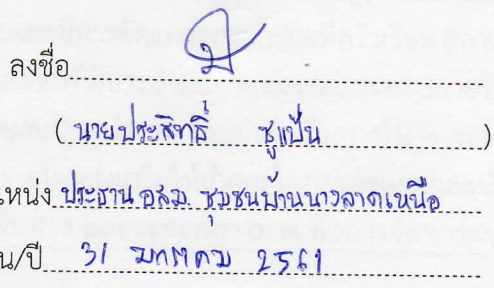 ลงชื่อ
( นายประสิทธิ์ ชูแป้น )
แหน่ง ประธาน อสม. ชุมชนบ้านนางลาดเหนือ
น/ปี 31 มกราคม 2561